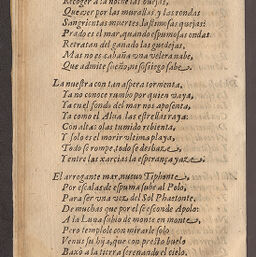 Recoger a la noche las ouejas,
Que ver por las murallas, y las rondas
Sangrientas muertes, lastimosas quejas:
Prado es el mar, quando espumosas ondas
Retratan del ganado las guedejas,
Mas no es cabaña una velera nabe,
Que admite sueño, ni sosiego sabe.
La nuestra con tan aspera tormenta,
Ya no conoce rumbo por quien vaya,
Ya en el fondo del mar nos aposenta,
Ya como el Alua las estrellas raya:
Con altas olas tumido rebienta,
Y solo es el morir vltima playa,
Todo se rompe, todo se deshaze,
Y entre las xarcias la esperança yaze.
El arrogante mar, nueuo Tiphonte,
Por escalas de espuma subir al Polo,
Para ser vna vez, del Sol Phaetonte,
De muchas que por el se esconde Apolo:
A la Luna subio de monte en monte,
Pero templole con mirarle solo
Venus su hija, que con presto buelo
Baxò a la tierra serenando el cielo.